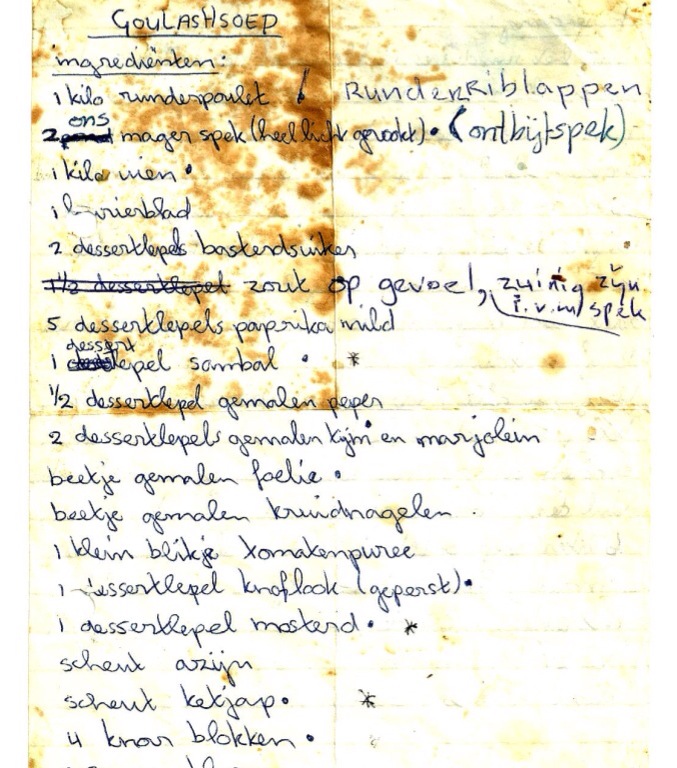 GOULASHSOEP
ingrediënten:
1 kilo runderpoulet / RUNDERRiblappen
2 ons mager spek (heel licht gerookt). (ontbijtspek)
1 kilo uien.
1 laurierblad
2 dessertlepels basterdsuiker
1½ dessertlepel zout op gevoel, zuinig zijn
i.v.m. spek
5 dessertlepels paprika mild
1 dessertlepel sambal . *
1/2 dessertlepel gemalen peper
2 dessertlepels gemalen kijm en marjolein
beetje gemalen foelie.
beetje gemalen kruidnagelen.
1 klein blikje tomatenpuree
1 dessertlepel knoflook (geperst).
1 dessertlepel mosterd. *
scheut azijn
scheut ketjap. *
4 knor blokken.